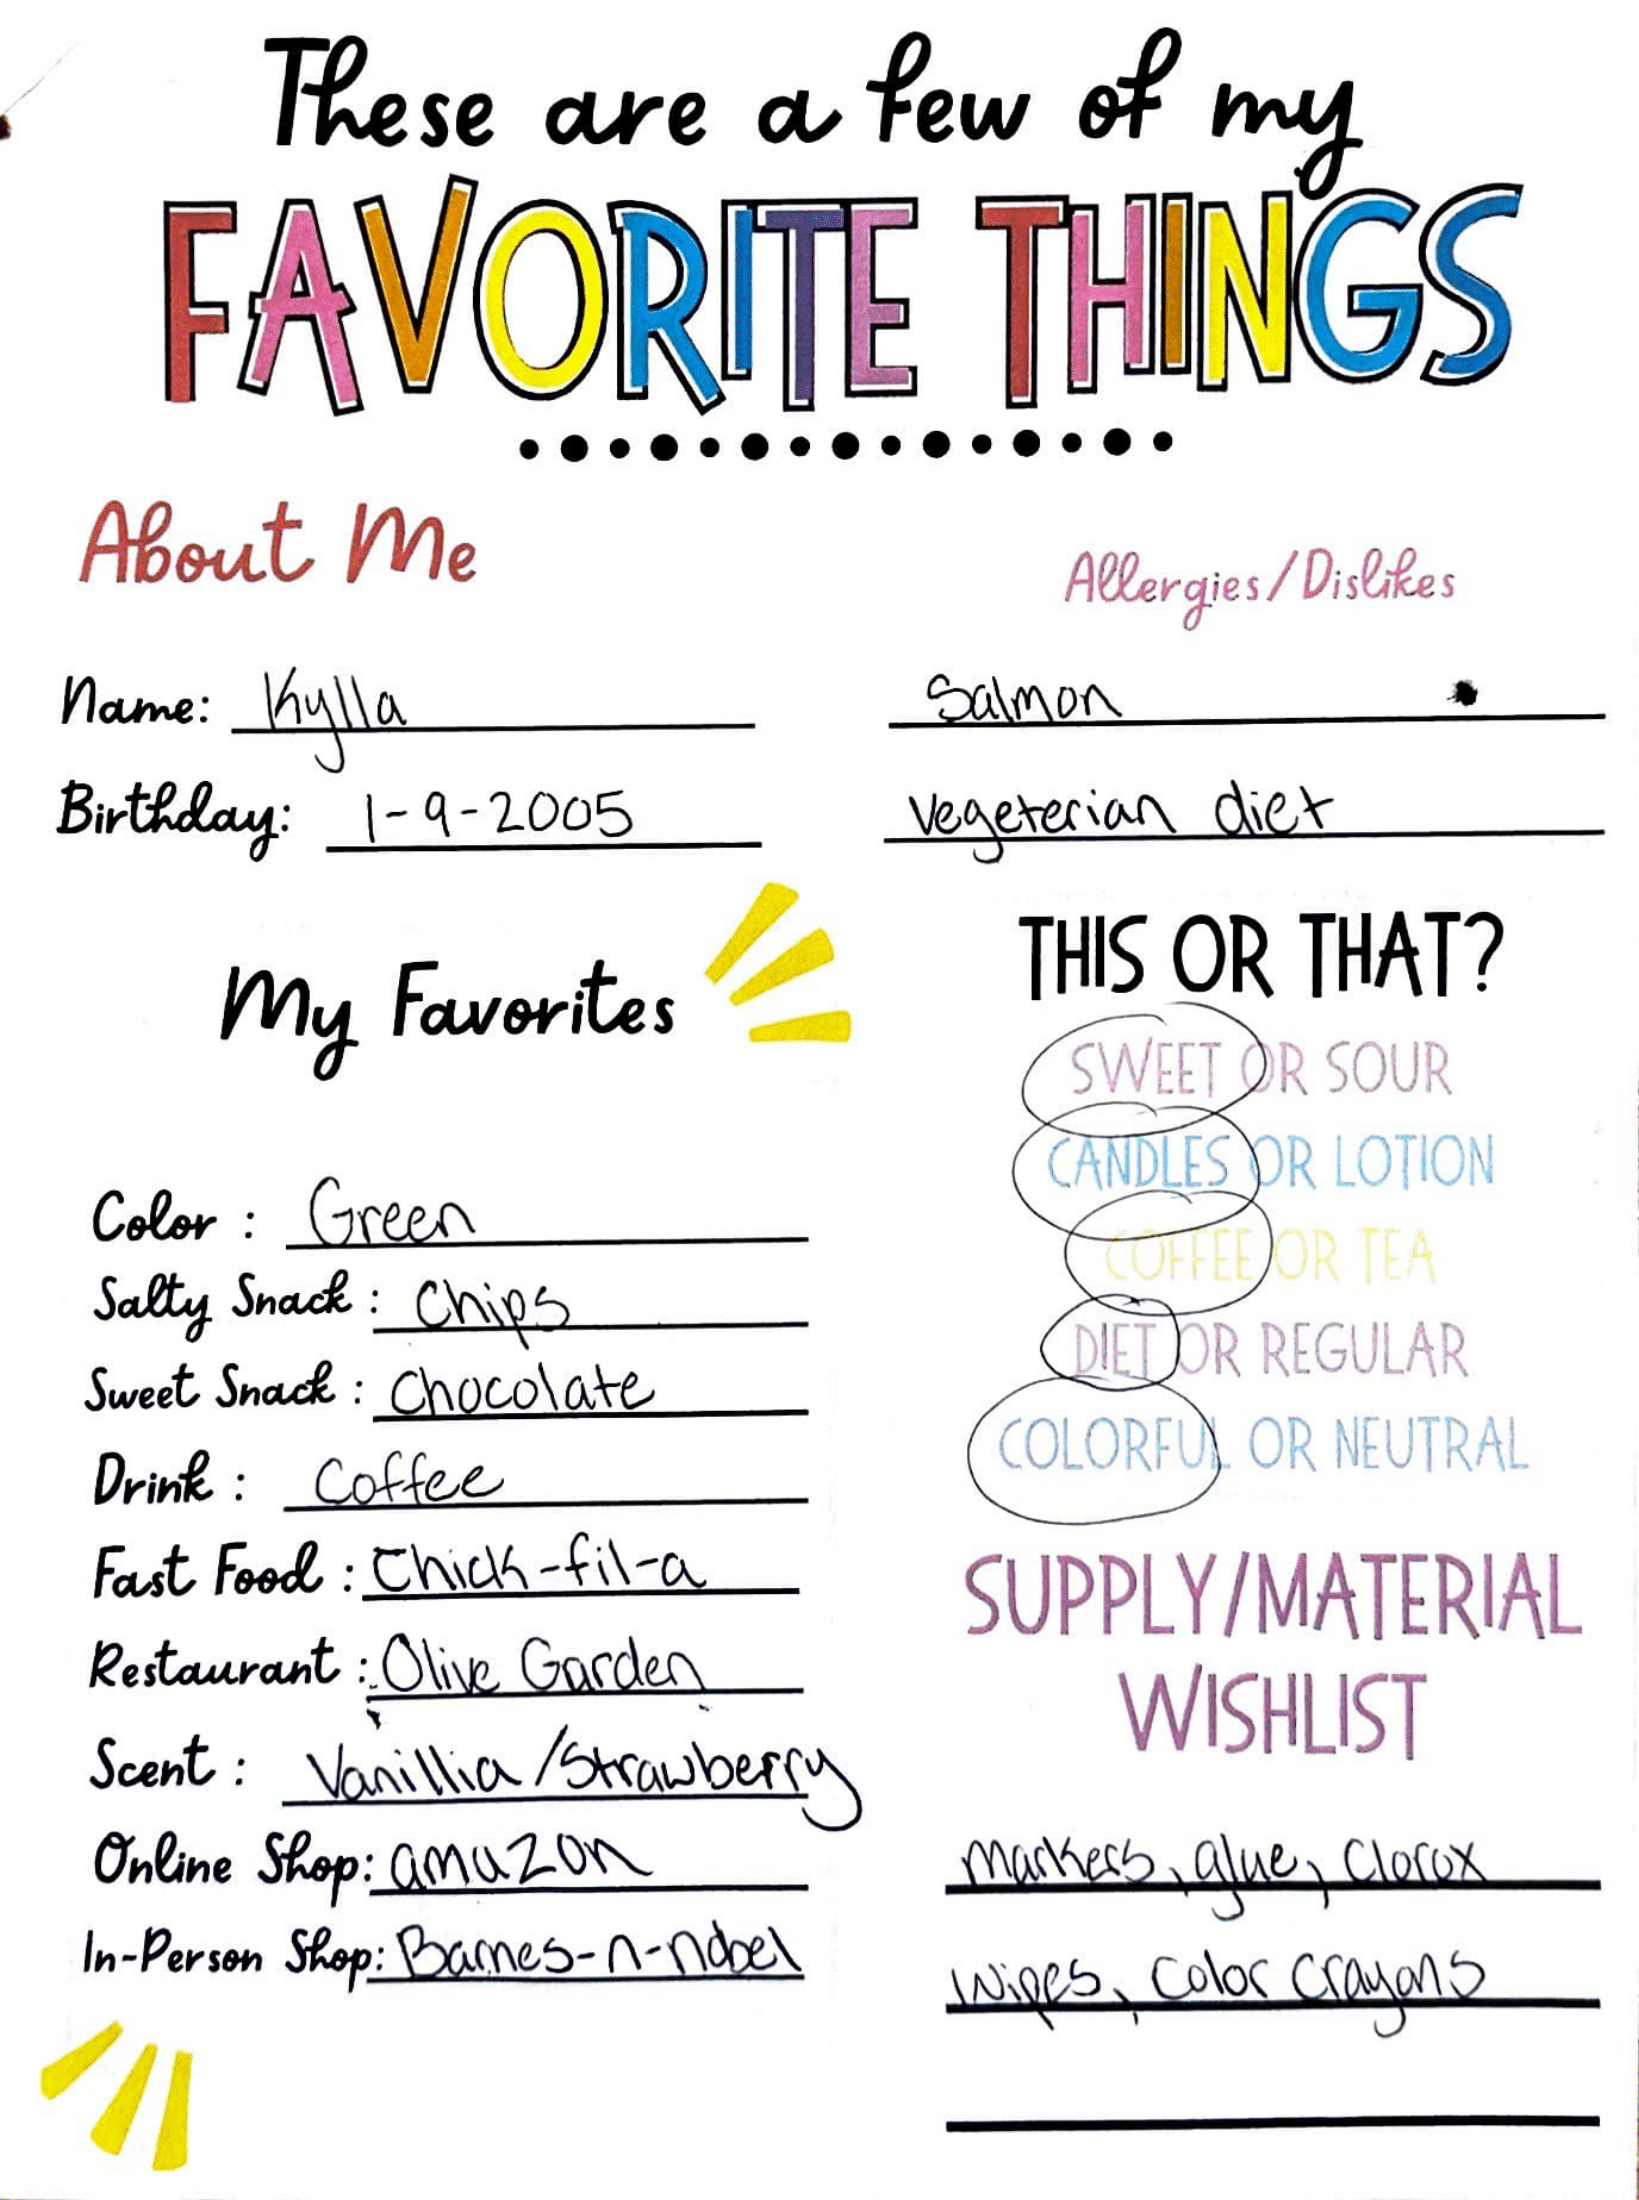 These are a few of my
FAVORITE THINGS
About Me
Name: Kylla
Birthday: 1-9-2005
Allergies/Dislikes
Salmon
Vegeterian diet
My Favorites
Color : Green
Salty Snack : Chips
Sweet Snack : Chocolate
Drink : Coffee
Fast Food : Chick-fil-a
Restaurant : Olive Garden
Scent : Vanillia/Strawberry
Online Shop: amazon
In-Person Shop: Barnes-n-nobel
THIS OR THAT?
SWEET OR SOUR
CANDLES OR LOTION
COFFEE OR TEA
DIET OR REGULAR
COLORFUL OR NEUTRAL
SUPPLY/MATERIAL
WISHLIST
Markers, glue, Clorox
wipes, color crayons